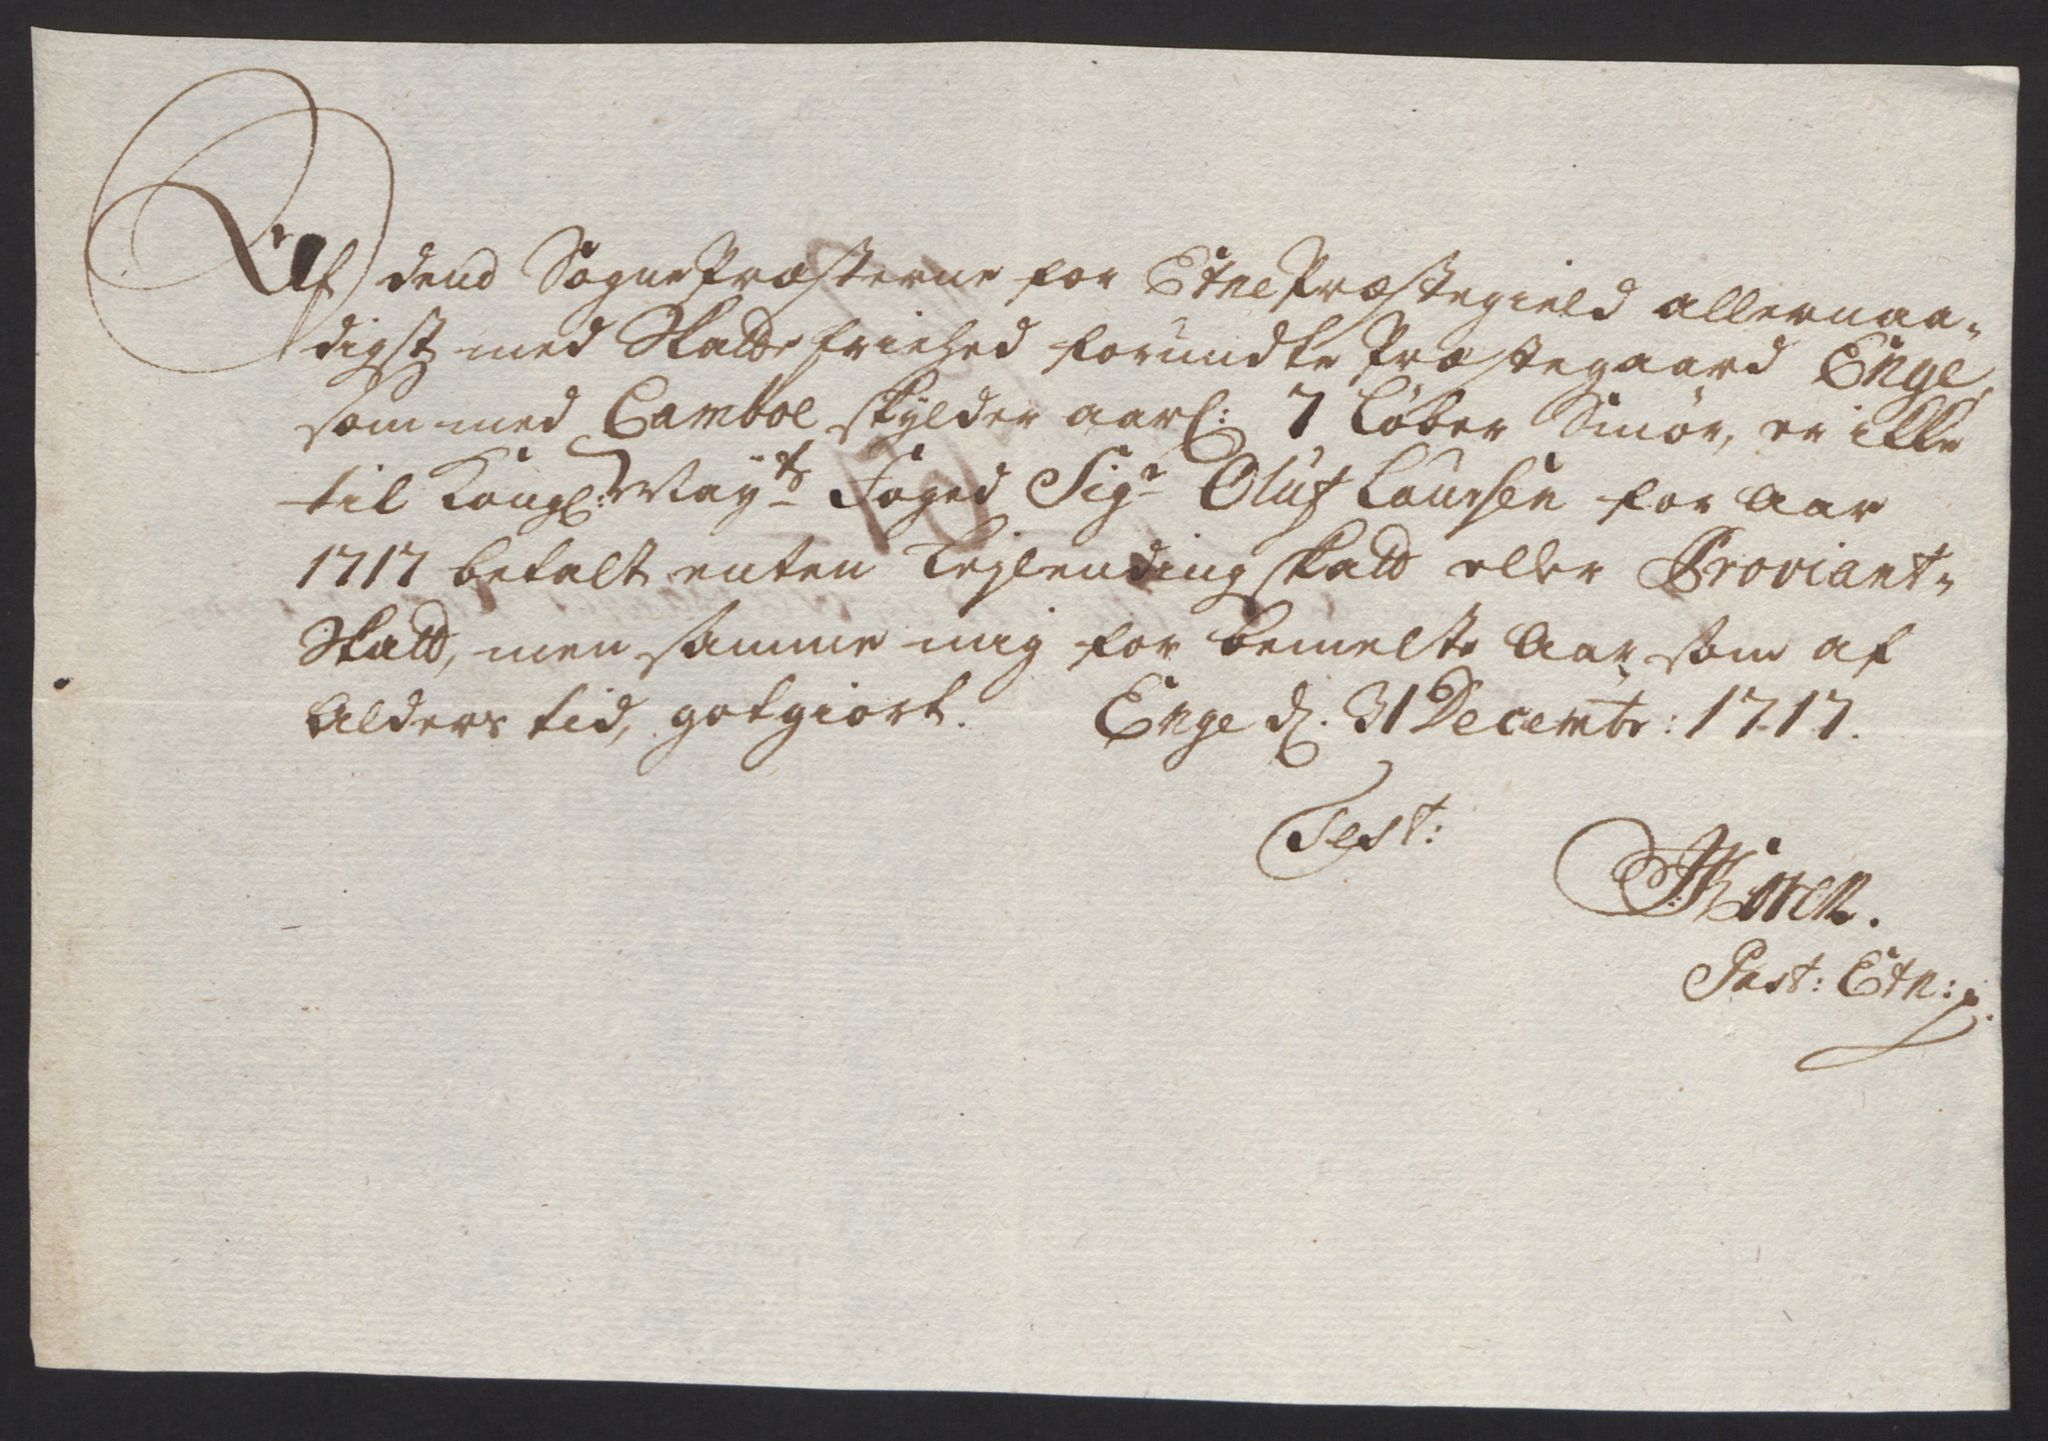 Af dend SognePræsterne for Etne Præstegield allernaa-
digst med Skatte friehed forundte Præstegaard Enge,
som med Camboe skylder aarl: 7 Løber Smør, er ikke
til Kongl: Mayts Foged Sigr Oluf Laursen for Aar
1717 betalt enten Lejlending skatt eller Proviant-
Skatt, men samme mig for bemelte Aar som af
Alders tid, gotgiort. Enge d. 31 Decembr: 1717.
Test:
Past: Etn: